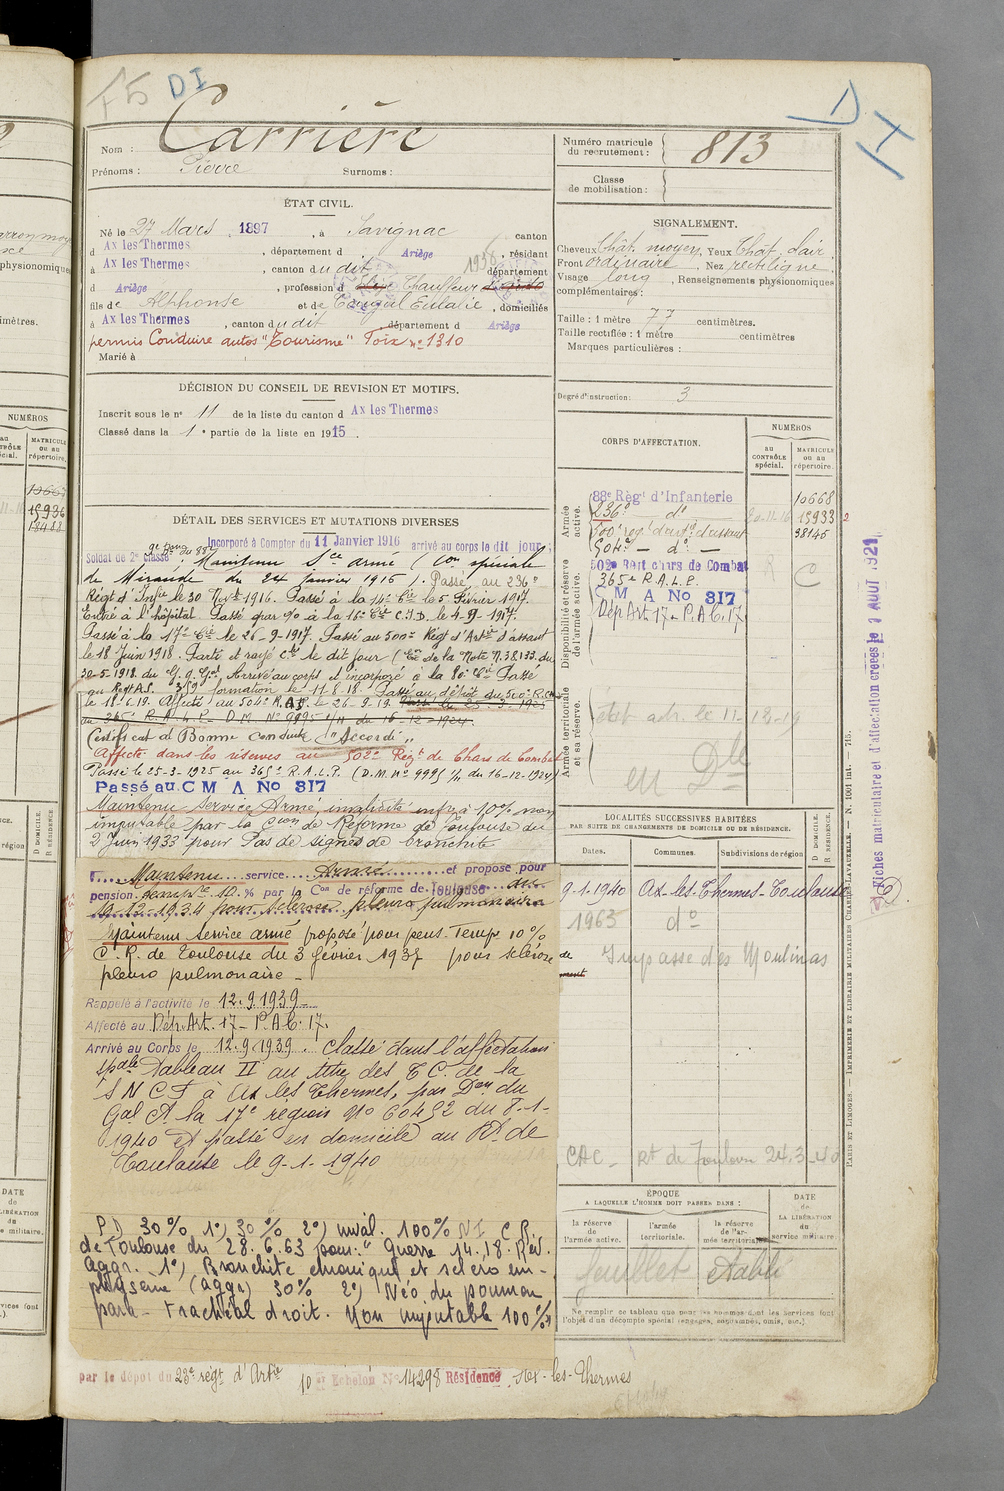 F5 DI
D I
Nom : Carrière
Prénoms : Pierre Surnoms :
ÉTAT CIVIL.
Né le 27 Mars 1897, à Savignac, canton
d Ax les Thermes, département d Ariège, résidant
à Ax les Thermes, canton du dit 1936 département
d Ariège, profession d Chauffeur d'auto
fils de Alphonse et de Carrigal Eulalie, domiciliés
à Ax les Thermes, canton du dit, département d Ariège
permis Conduire autos "Tourisme" Foix n° 1310
Marié à
DÉCISION DU CONSEIL DE REVISION ET MOTIFS.
Inscrit sous le n° 11 de la liste du canton d Ax les Thermes
Classé dans la 1e partie de la liste en 1915.
DÉTAIL DES SERVICES ET MUTATIONS DIVERSES
Incorporé à Compter du 11 Janvier 1916 arrivé au corps le dit jour
Soldat de 2e classe. Maintenu Sce armé (Con spéciale
de Mirande du 24 Janvier 1916). Passé au 236e
Régt d'Infie le 30 Novbre 1916. Passé à la 14e Cie le 5 Février 1917.
Entré à l'hôpital Passé par 90 à la 15e Cie C.I.D. le 4-9-1917.
Passé à la 17e Cie le 26-9-1917. Passé au 500e Régt d'Artie d'assaut
le 18 Juin 1918. Parti et rayé cle le dit jour (Ex de la Note N. 38.133 du
30-5-1918 du G.Q.G. Arrivé au corps et incorporé à la 80e Cie Passé
au Régt A.S. 359e formation le 11-8-18. Passé au dépôt du 500e R.
le 18-6-19. Affecté au 504e R.A.S. le 26-9-19. Passé le 25-3-1925
au 365e R.A.L.P. D.M. N° 9995 1/11 du 16-12-1924.
Certificat de Bonne Conduite "Accordé"
Affecté dans les réserves au 502e Régt de Chars de Combat
Passé le 25-3-1925 au 365e R.A.L.P. (D.M. N° 9995 1/11 du 16-12-1924)
Passé au C M A No 317
Maintenu Service Armé invalidité infra 10% non
imputable par la Cion de Réforme de Toulouse du
2 Juin 1933 pour Pas de signes de bronchite
Maintenu service Armé et propose pour
pension temporre 10 % par la Con de réforme de Toulouse du
19-12-1934 pour sclérose pleuro pulmonaire
Maintenu Service armé proposé pour pens. Tempe 10%
C.R. de Toulouse du 3 février 1937 pour sclérose
pleuro pulmonaire -
Rappelé à l'activité le 12.9.1939
Affecté au Dép. Art. 17 - P.A.C. 17.
Arrivé au Corps le 12.9.1939. Classé dans l'affectation
spale Tableau II au titre des T C. de la
S N C F à Ax les Thermes, par Don du
Gal Ct la 17e région N° 60452 du 8-1-
1940 et passé en domicile au Rt de
Toulouse le 9-1-1940
P.D. 30% 1°) 30% 2°) inval. 100% N I C R
de Toulouse du 28.6.63 pour: "Guerre 14.18. Réf.
Aggr. 1°) Bronchite chronique et scléro em-
physème (aggr) 30% 2°) Néo du poumon
para-trachéal droit. Non imputable 100%"
par le dépôt du 23e régt d'Artie 10 er Echelon No 14298 Résidence Ax-les-Thermes
Numéro matricule du recrutement : 813
Classe de mobilisation :
SIGNALEMENT.
Cheveux Chât. moyen, Yeux Chât. clair
Front ordinaire, Nez rectiligne
Visage long, Renseignements physionomiques
complémentaires :
Taille : 1 mètre 77 centimètres.
Taille rectifiée : 1 mètre centimètres
Marques particulières :
Degré d'instruction : 3
CORPS D'AFFECTATION.
NUMÉROS
au CONTRÔLE spécial.
MATRICULE ou au répertoire.
Armée active.
88e Régt d'Infanterie 10668
236e do 15933
500e régt d'artie d'assaut 38145
504e - do -
Disponibilité et réserve de l'armée active.
502e Régt chars de Combat
365e R.A.L.P.
C M A No 317
Dép Art 17 - P.A.C. 17
Armée territoriale et sa réserve.
en Dle
LOCALITÉS SUCCESSIVES HABITÉES
PAR SUITE DE CHANGEMENTS DE DOMICILE OU DE RÉSIDENCE.
Dates. Communes. Subdivisions de région D. DOMICILE. R. RÉSIDENCE.
9-1-1940 Ax-les-Thermes - Toulouse
1963 do
Impasse des Moulinas
CAC - Rt de Toulouse 24.3-40
ÉPOQUE
A LAQUELLE L'HOMME DOIT PASSER DANS :
la réserve de l'armée active.
l'armée territoriale.
la réserve de l'armée territoriale.
DATE de la LIBÉRATION du service militaire.
feuillet établi
Ne remplir ce tableau que pour les hommes dont les services font
l'objet d'un décompte spécial (engagés, sursitaires, omis, etc.).
Fiches matriculaire et d'affectation créées le 1 AOUT 1921
PARIS ET LIMOGES. — IMPRIMERIE ET LIBRAIRIE MILITAIRES CHARLES-LAVAUZELLE. — N. 1001 int. — 715.